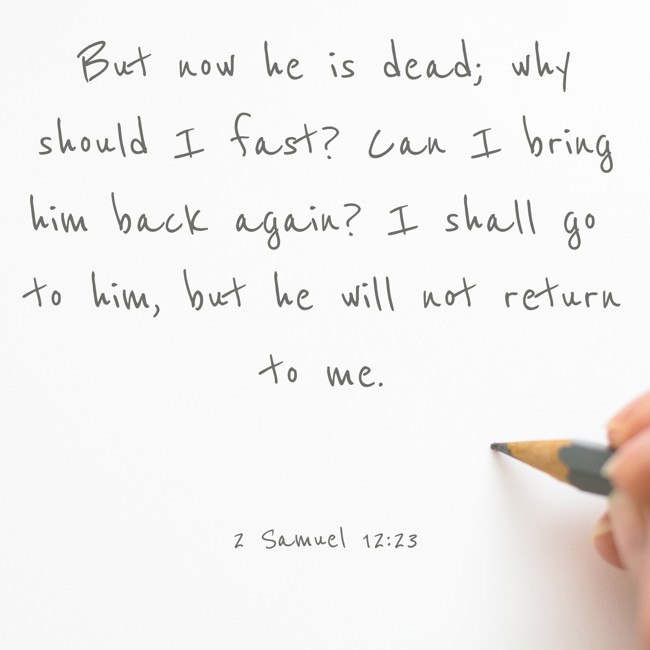 But now he is dead; why
should I fast? Can I bring
him back again? I shall go
to him, but he will not return
to me.
2 Samuel 12:23